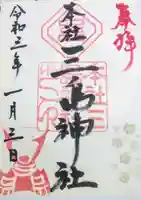 奉拝
本社
三島神社
令和三年
一月三日